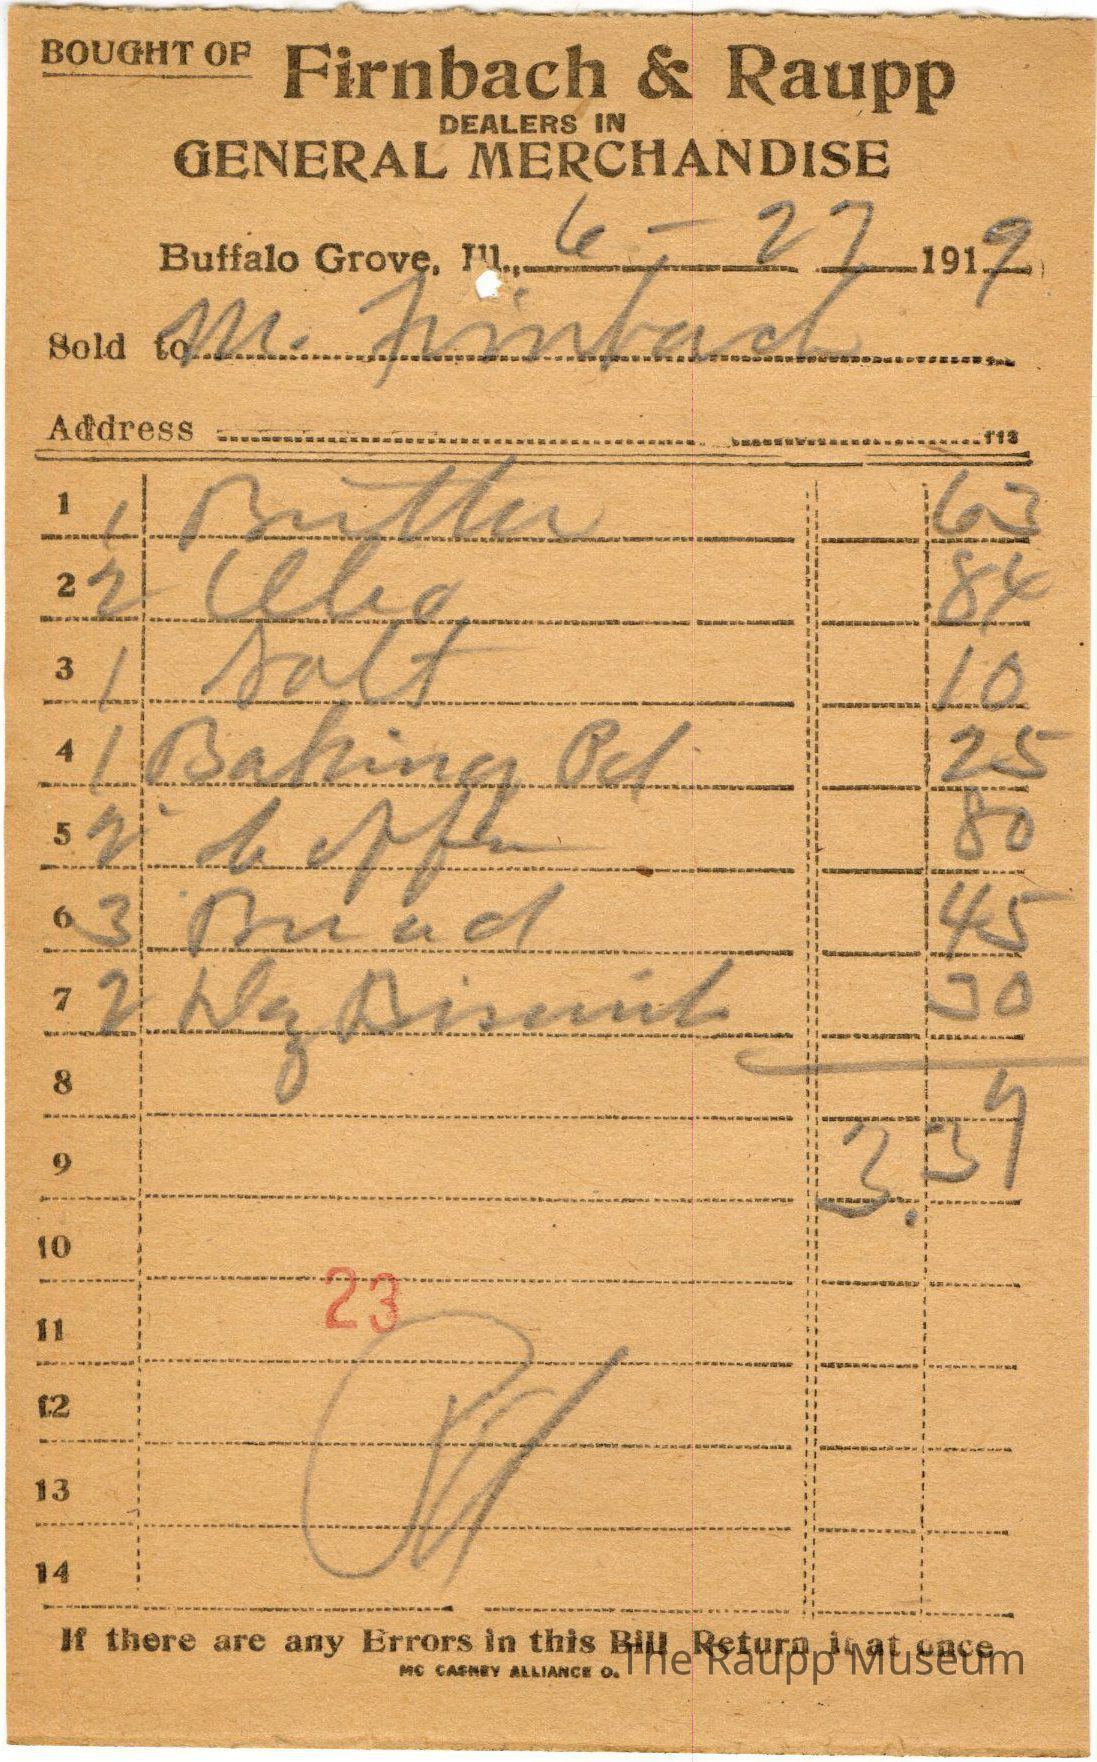 BOUGHT OF Firnbach & Raupp
DEALERS IN
GENERAL MERCHANDISE
Buffalo Grove, Ill., 6-27 1919
Sold to M. Firnbach
Address
113
1 1 Butter 63
2 2 Oleo 84
3 1 Salt 10
4 1 Baking Pd 25
5 2 Coffee 80
6 3 Bread 45
7 2 Dz Biscuit 30
8
9 3.37
10
23
11
12
13
14
If there are any Errors in this Bill Return it at once
MC CASKEY ALLIANCE O.
The Raupp Museum